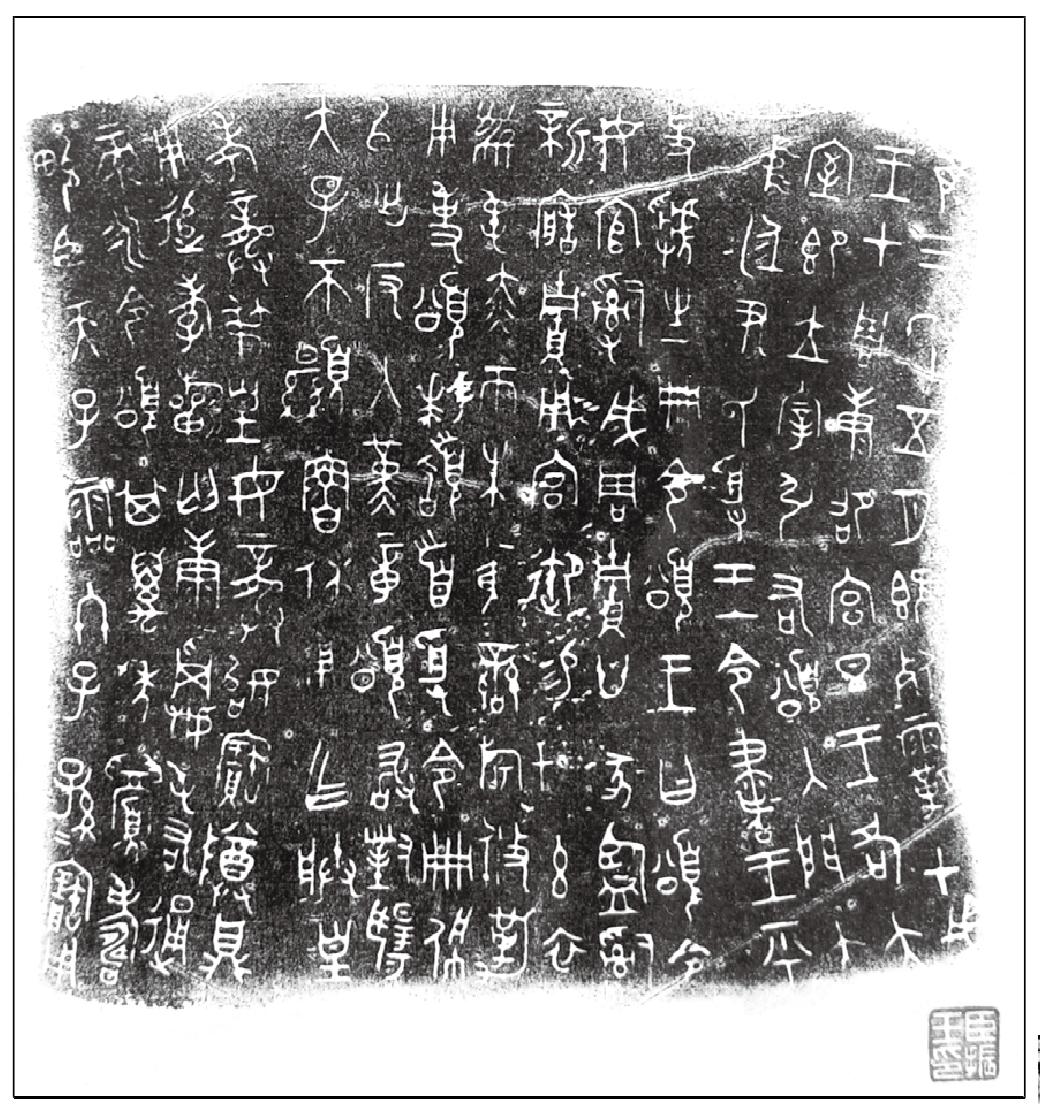 隹三年五月既死霸甲戌
王才周康卲宮旦王各大
室即立宰引右頌入門立
中廷尹氏受王令書王乎
史虢生冊令頌王曰頌令
女官𤔲成周貯廿家監𤔲
新造貯用宮御易女玄衣
黹屯赤市朱黃鑾旂攸勒
用事頌拜稽首受令冊佩
以出反入堇章頌敢對揚
天子不顯魯休用乍朕皇
考龔叔皇母龔姒寶尊鼎
用追孝祈匄康𠖷屯右通
彔永令頌其萬年眉壽
畯臣天子霝冬子孫寶用